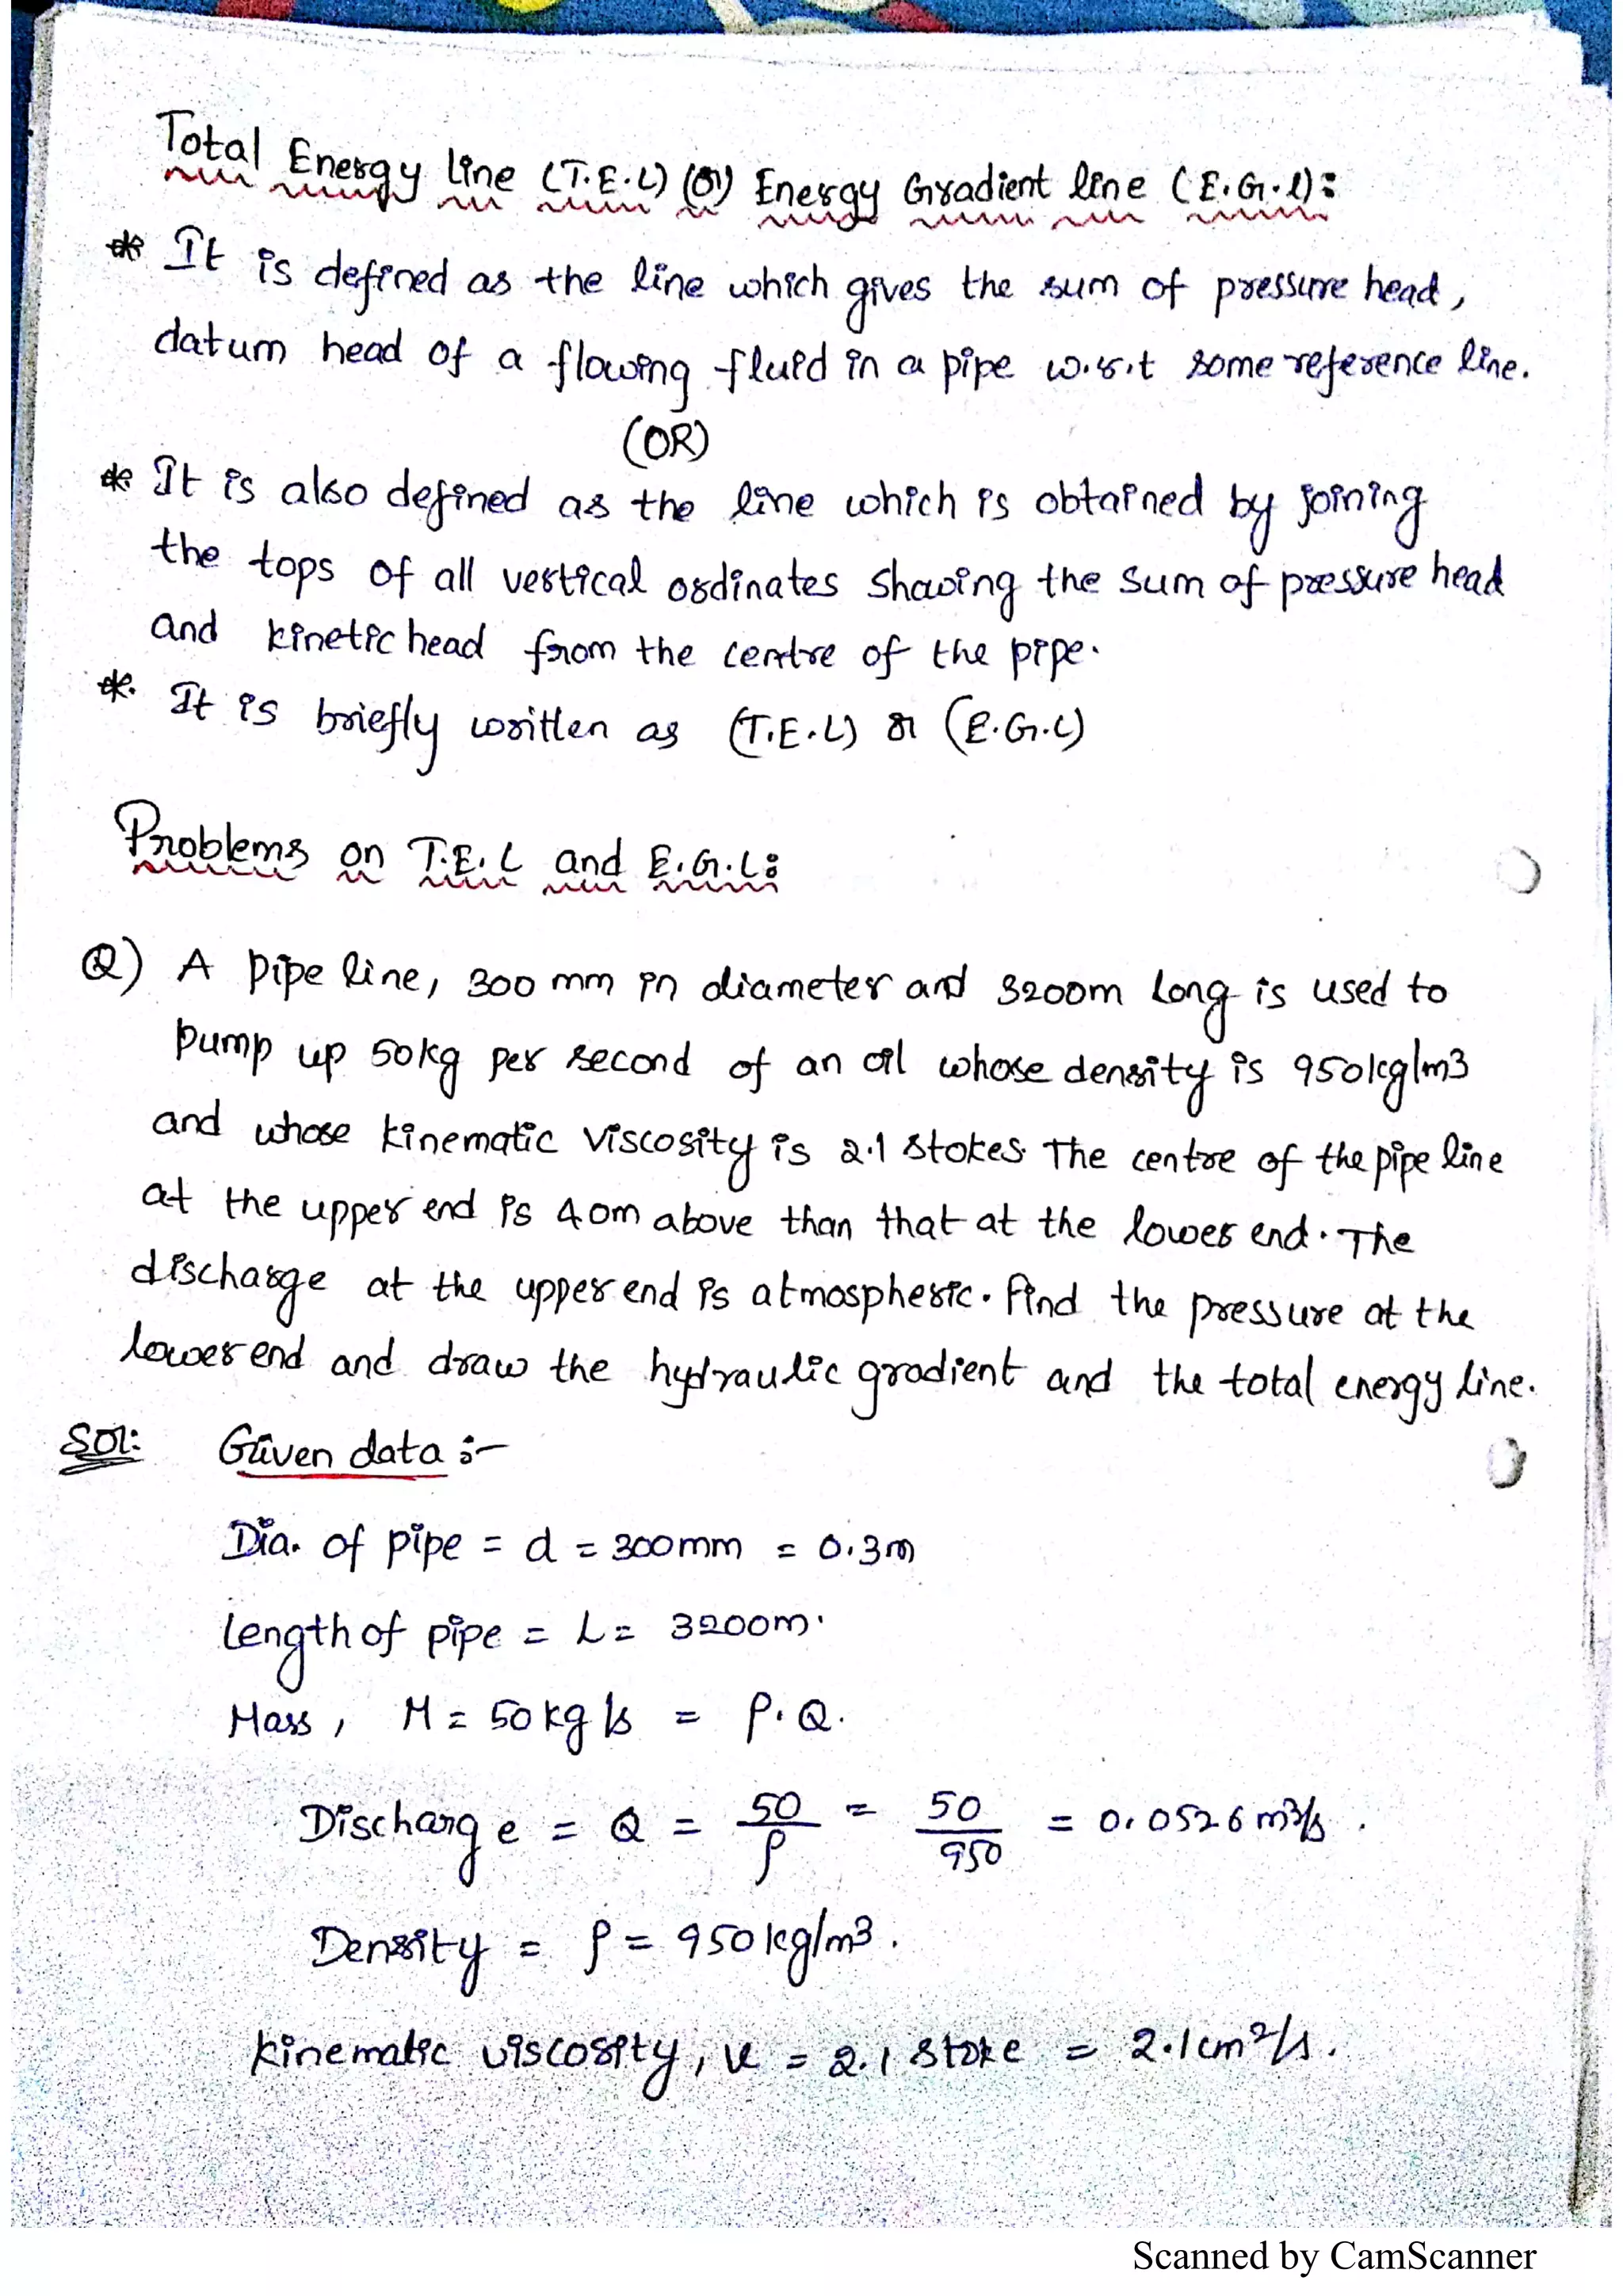 Total Energy line (T.E.L) (or) Energy Gradient line (E.G.l):
* It is defined as the line which gives the sum of pressure head,
datum head of a flowing fluid in a pipe w.r.t some reference line.
(OR)
* It is also defined as the line which is obtained by joining
the tops of all vertical ordinates showing the sum of pressure head
and kinetic head from the centre of the pipe.
* It is briefly written as (T.E.L) or (E.G.L)
Problems on T.E.L and E.G.L:
Q) A pipe line, 300 mm in diameter and 3200m long is used to
pump up 50kg per second of an oil whose density is 950kg/m3
and whose kinematic viscosity is 2.1 stokes. The centre of the pipe line
at the upper end is 40m above than that at the lower end. The
discharge at the upper end is atmospheric. find the pressure at the
lower end and draw the hydraulic gradient and the total energy line.
Sol: Given data :-
Dia. of pipe = d = 300mm = 0.3m
length of pipe = L = 3200m.
Mass, M = 50kg/s = ρ.Q.
Discharge = Q = 50/ρ = 50/950 = 0.0526 m3/s.
Density = ρ = 950kg/m3.
kinematic viscosity, ν = 2.1 stoke = 2.1cm²/s.
Scanned by CamScanner